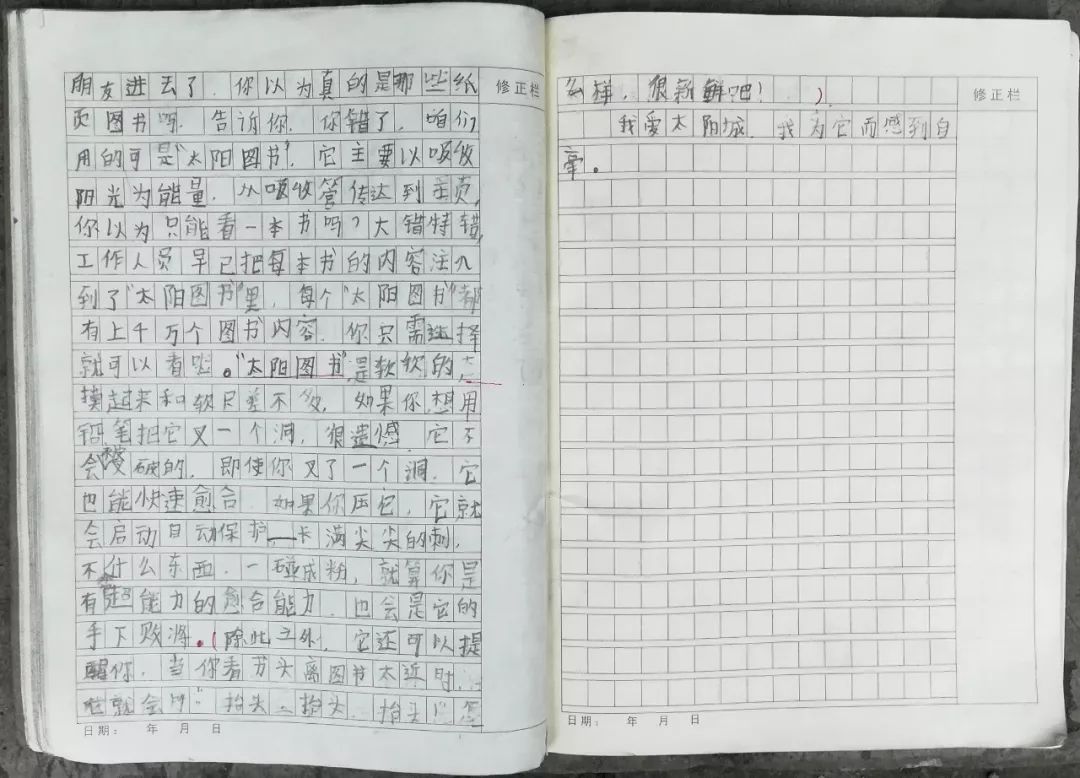 朋友进去了。你以为真的是那些纸
页图书吗，告诉你，你错了，咱们
用的可是“太阳图书”，它主要以吸收
阳光为能量，从吸收管传达到主页，
你以为只能看一本书吗？大错特错，
工作人员早已把每本书的内容注入
到了“太阳图书”里，每个“太阳图书”都
有上千万个图书内容，你只需选择
就可以看啦。“太阳图书”是软软的，
摸起来和软尺差不多，如果你想用
铅笔把它叉一个洞，很遗憾，它不
会破的，即使你叉了一个洞，它
也能快速愈合，如果你压它，它就
会启动自动保护，长满尖尖的刺，
不什么东西，一碰成粉，就算你是
有超能力的愈合能力，也会是它的
手下败将。（除此之外，它还可以提
醒你，当你看书头离图书太近时，
它就会叫：“抬头、抬头、抬头！”怎
日期： 年 月 日
修正栏
么样，很新鲜吧！）。
我爱太阳城，我为它而感到自
豪。
日期： 年 月 日
修正栏